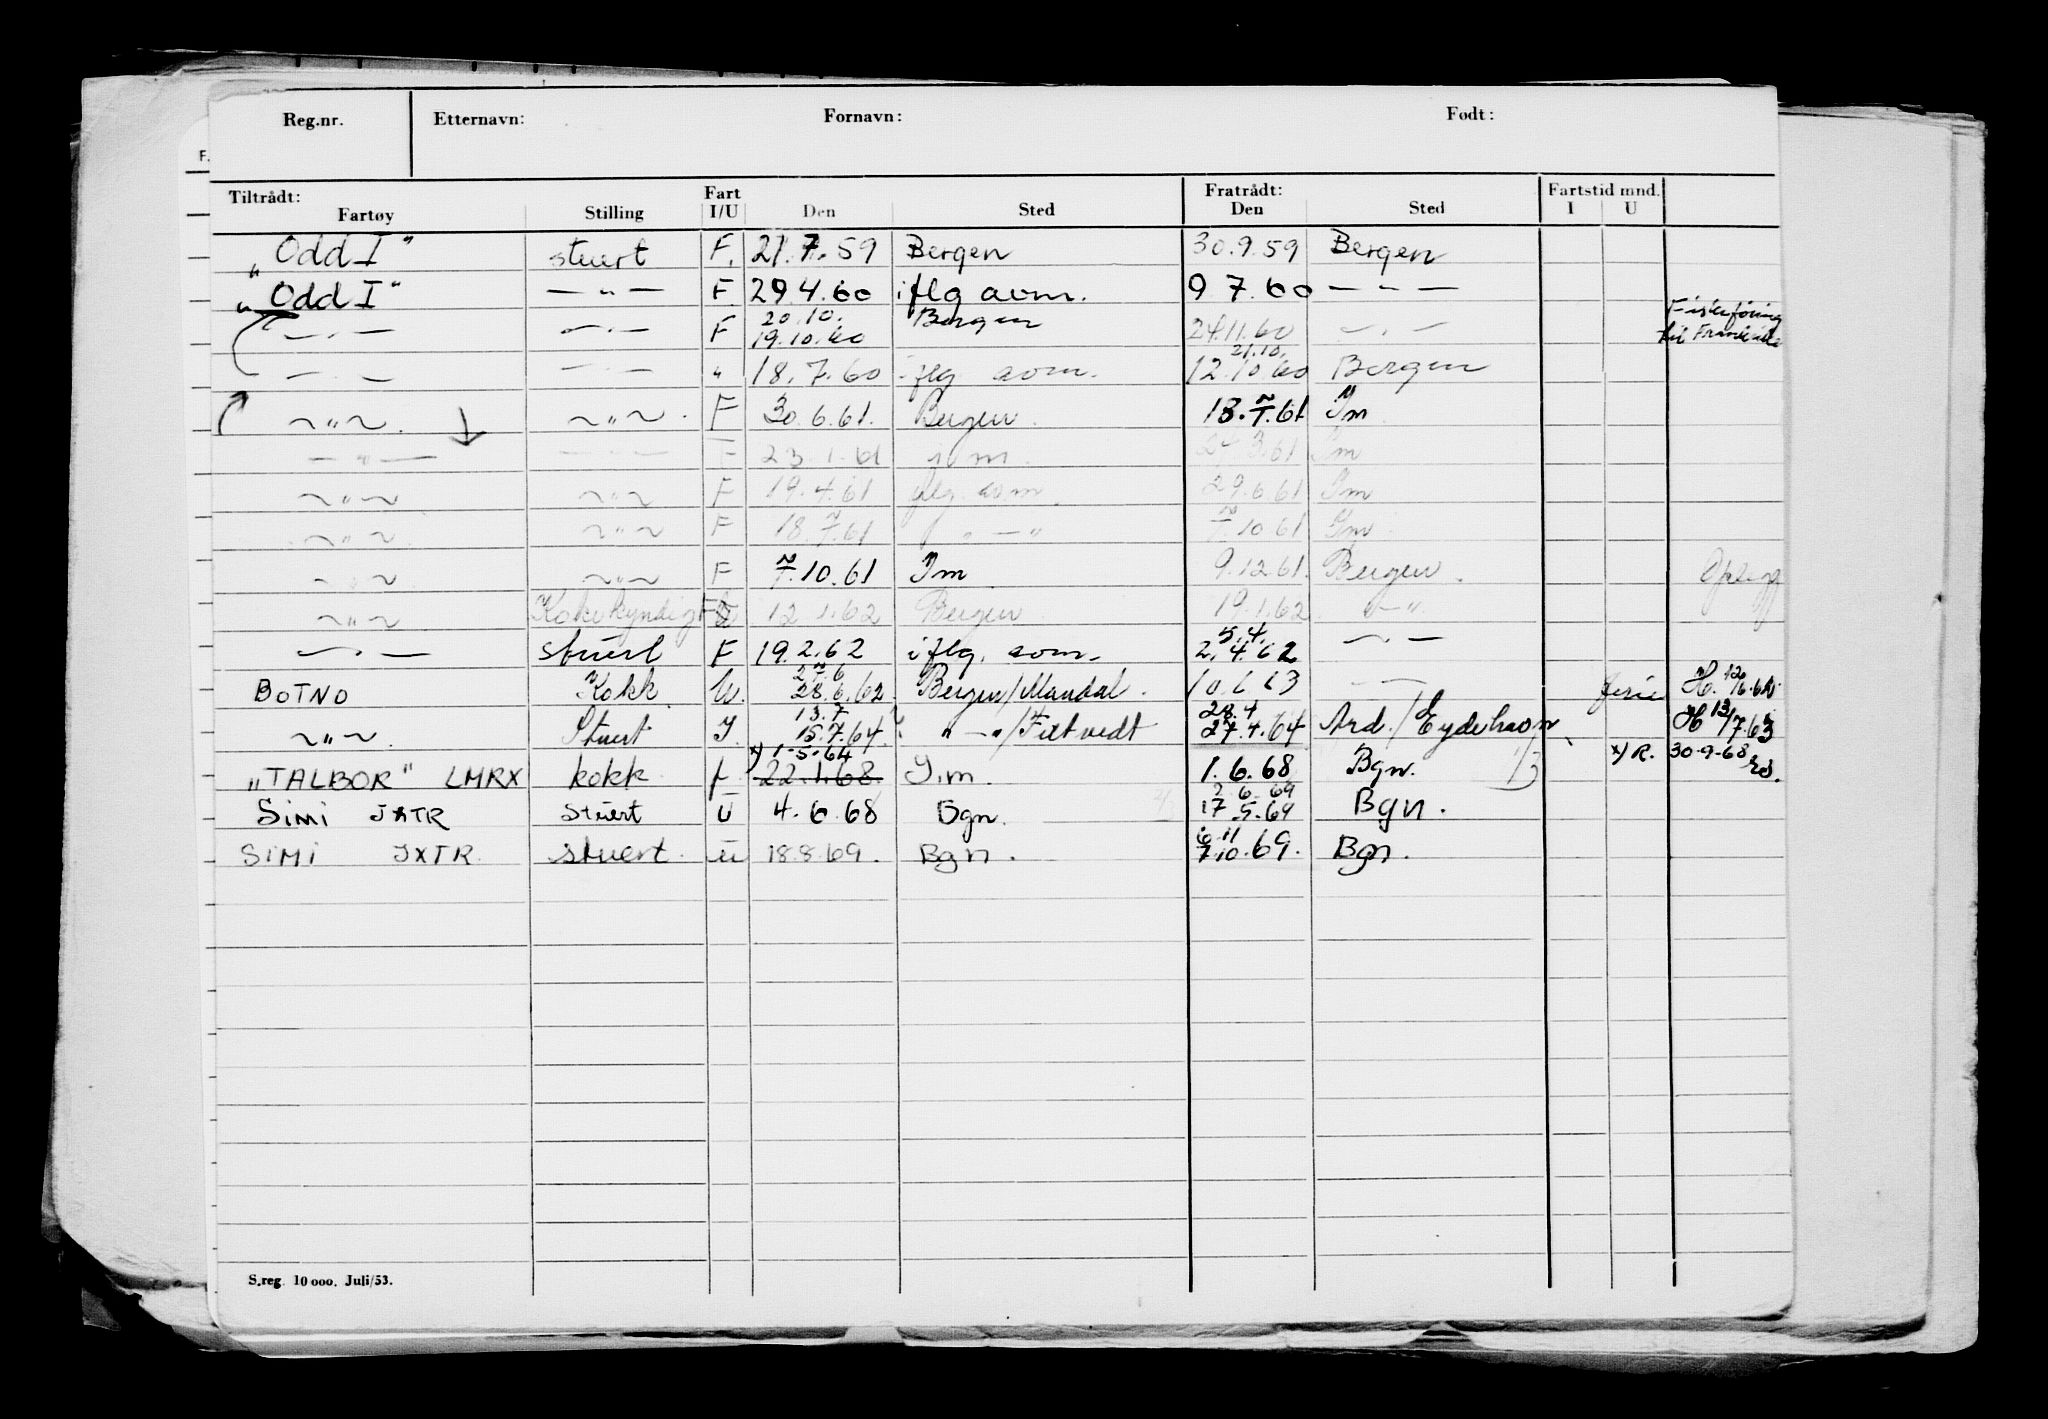 Reg.nr. Etternavn: Fornavn: Født:
F.
Tiltrådt: Fart Fratrådt: Fartstid mnd.
Fartøy Stilling I/U Den Sted Den Sted I U
„Odd I" stuert F. 21.7.59 Bergen 30.9.59 Bergen
„Odd I" — " — F 29.4.60 iflg avm. 9 7.60 — " —
20.10. 21.10.
— " — — " — F 19.10.60 Bergen 24.11.60 — " — Fiskeføring til Frankrike
— " — — " — " 18.7.60 iflg avm. 12.10.60 Bergen
~ " ~ . ~ " ~ . F 30.6.61. Bergen . 18.7.61 Im
— " — — " — F 23.1.61 i m. 24.3.61 Im
~ " ~ ~ " ~ F 19.4.61 iflg. avm. 29.6.61 Im
~ " ~ ~ " ~ F 18.7.61 " — " 7.10.61 Im
~ " ~ ~ " ~ F 7.10.61 Im 9.12.61. Bergen . Opplegg
~ " ~ Kokkyndig 12.1.62 Bergen 19.1.62 — " .
5.4.
— " — stuert F 19.2.62 iflg. avm. 2.4.62 — " —
27.6
BOTNO Kokk U. 28.6.62. Bergen/Mandal . 10.6.63 — " — ferie H. 12/6.64
13.7 28.4
~ " ~ . Stuert I. 15.7.64. " — " /Filtvedt 27.4.64 Ard./Eydehavn H 13/7.63
x) 1-5-64
„TALBOR" LMRX kokk f 22.1.68. I.m. 1.6.68 Bgn. 1/3 x) R. 30-9-68
2.6.69
SIMI JXTR stuert U 4.6.68 Bgn. 17.5.69 Bgn.
6.11
SIMI JXTR. stuert. u 18.8.69. Bgn . 7.10.69. Bgn.
S.reg. 10 000. Juli/53.